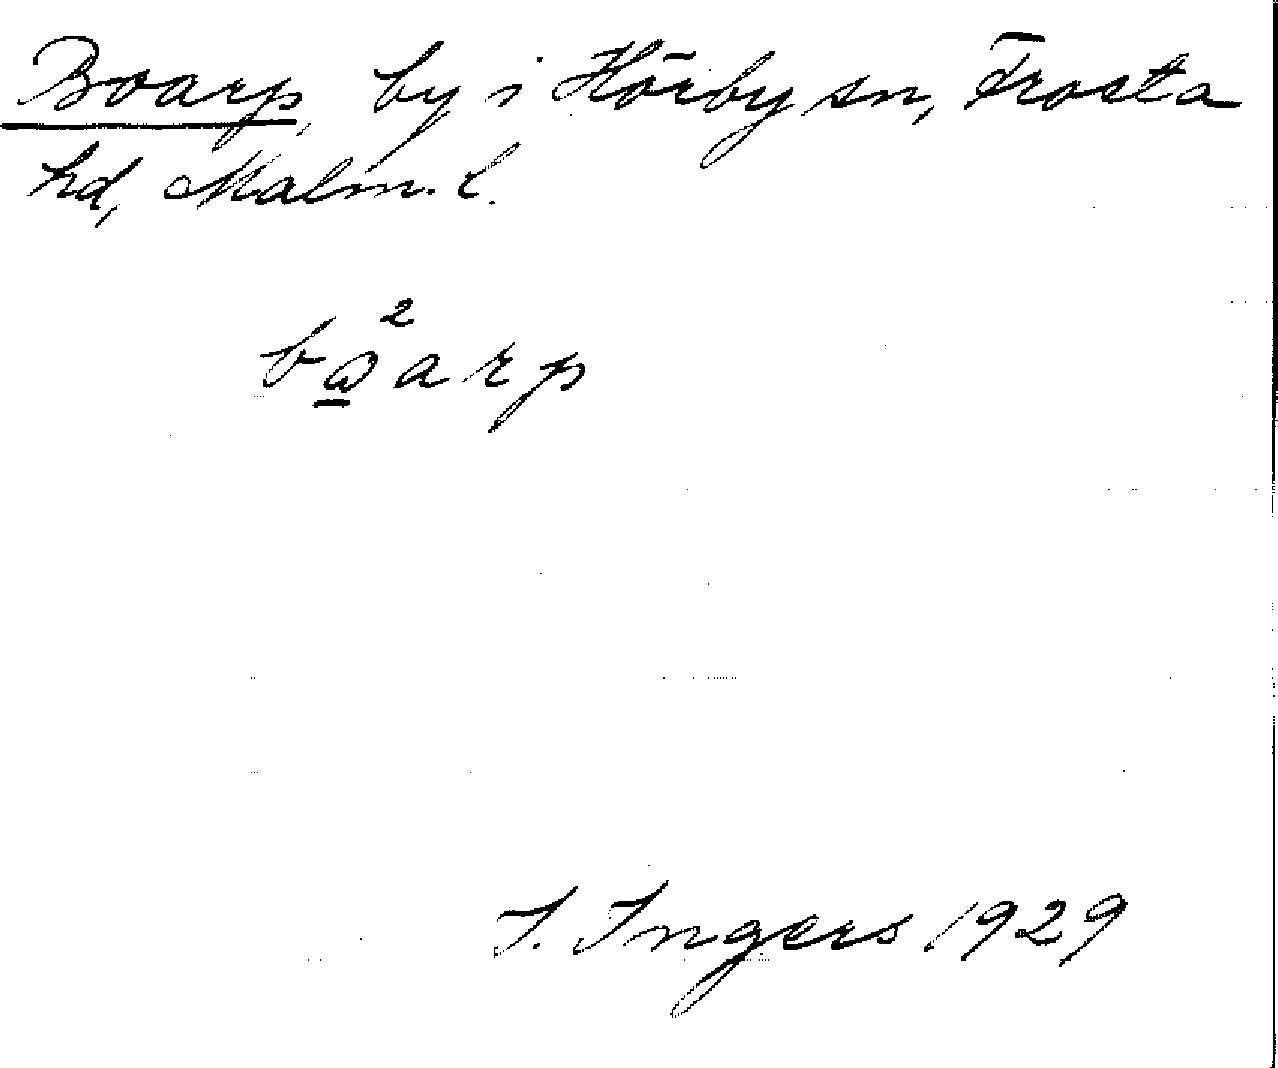 Boarp, by i Hörby sn, Frosta
hd, Malm. l.
bω̲²arp
I. Ingers 1929